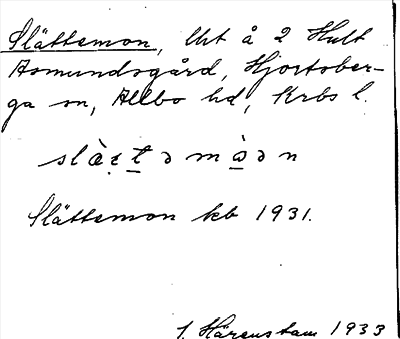 Slättemon, Uti å 2 Hult
Asmundsgård, Hjortsber-
ga sn, Allbo hd, Krbs l.
slὰ̣ε̣t̠əmὰ̠ən
Slättemon kb 1931.
J. Härenstam 1933